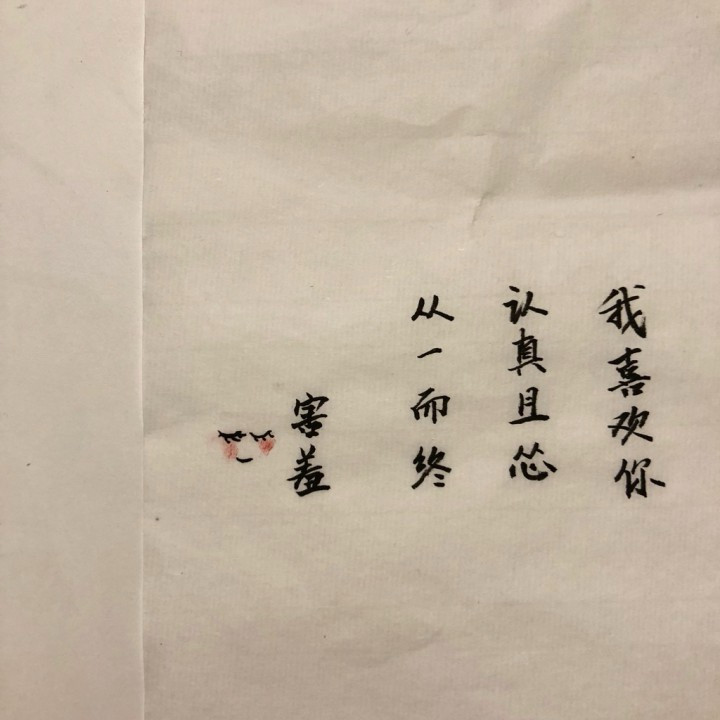 我喜欢你
认真且怂
从一而终
害羞